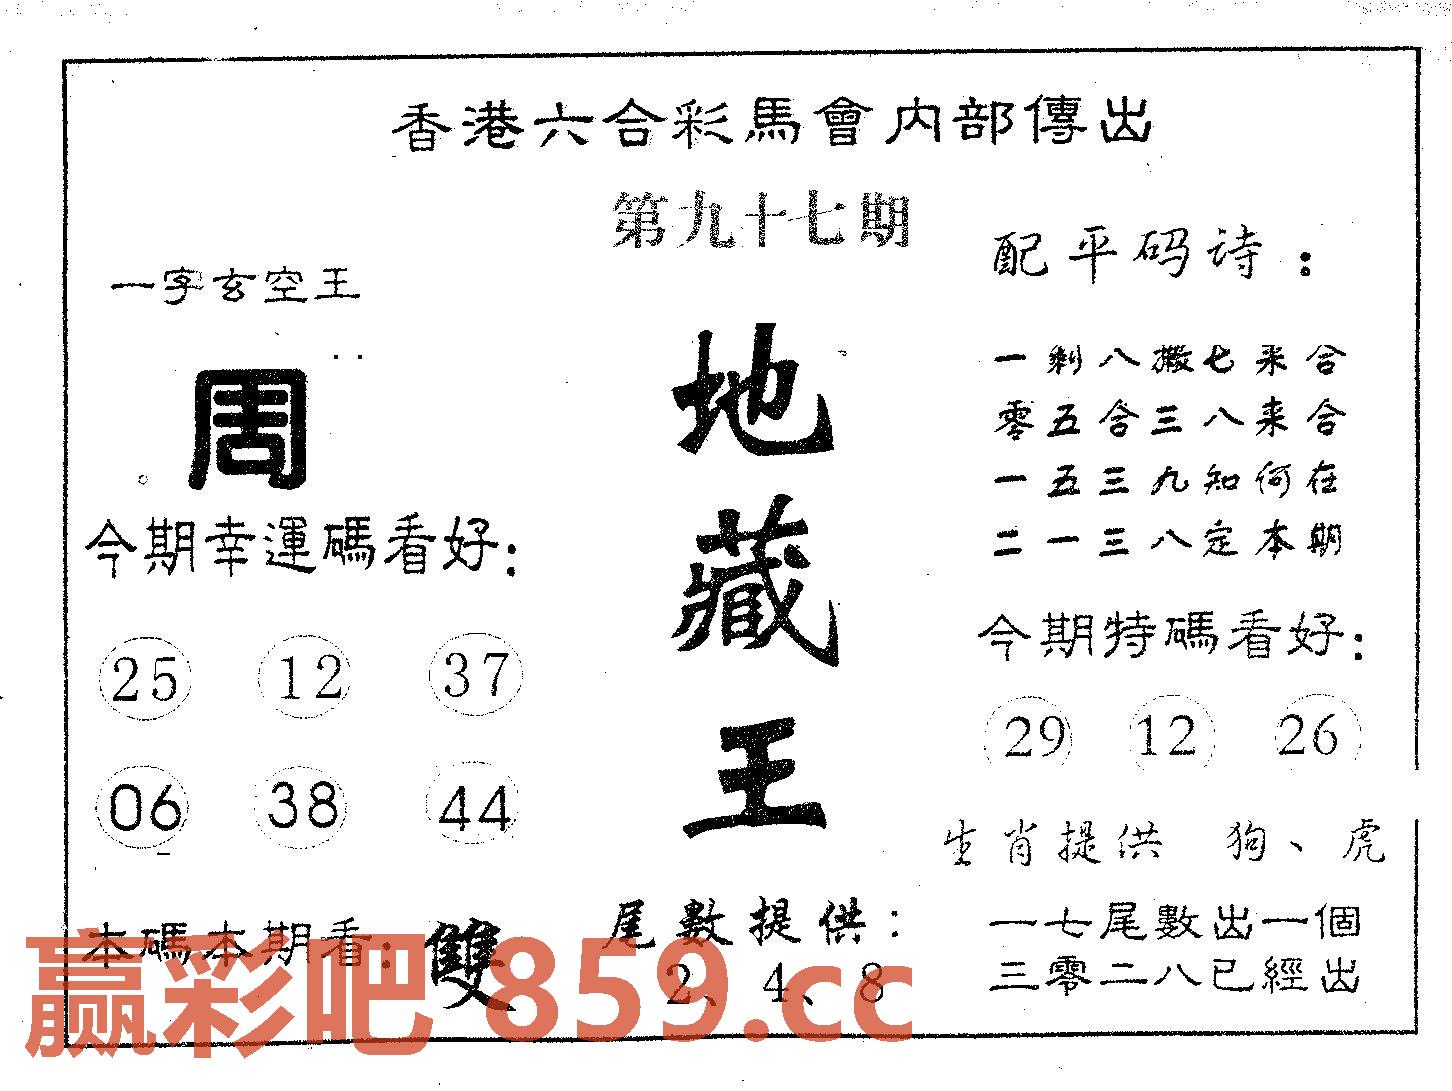 香港六合彩馬會内部傳出
第九十七期
一字玄空王
周
今期幸運碼看好:
25 12 37
06 38 44
本碼本期看: 雙
地藏王
尾數提供:
2、4、8
配平码诗:
一剩八搬七来合
零五合三八来合
一五三九知何在
二一三八定本期
今期特碼看好:
29 12 26
生肖提供 狗、虎
一七尾數出一個
三零二八已經出
赢彩吧 859.cc